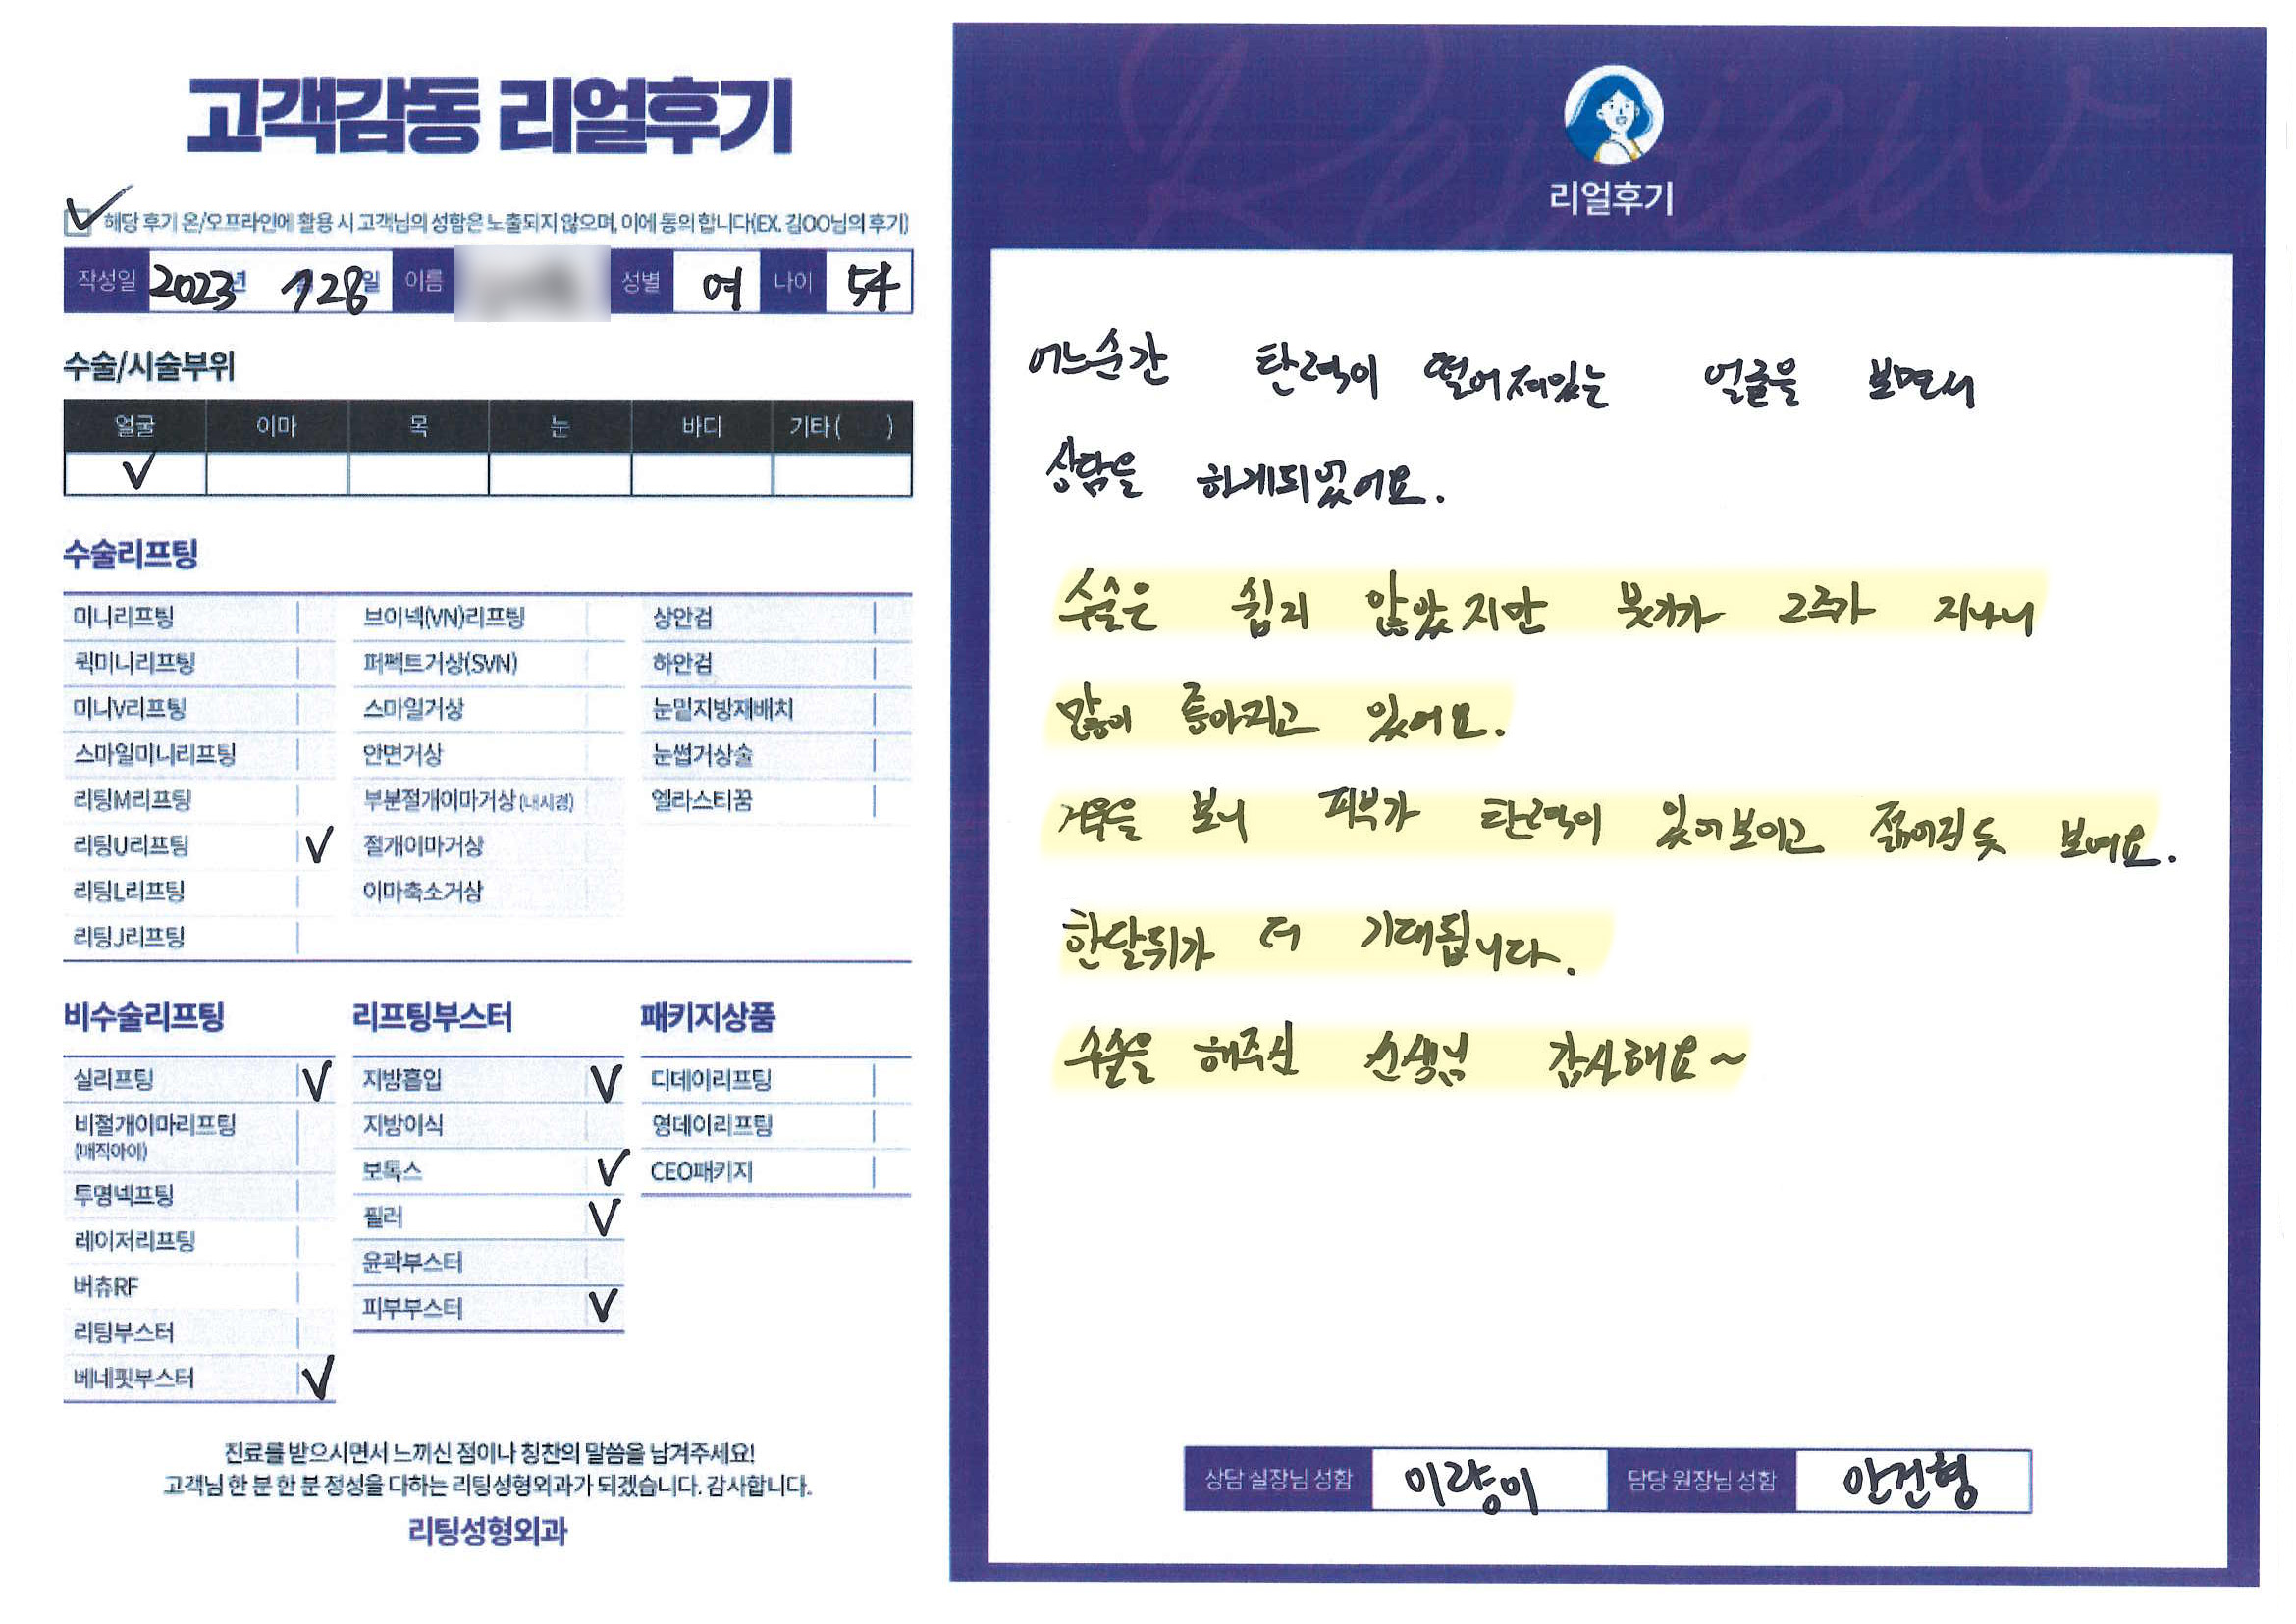 고객감동 리얼후기
✓ 해당 후기 온/오프라인에 활용 시 고객님의 성함은 노출되지 않으며, 이에 동의 합니다(EX. 김OO님의 후기)
작성일 2023년 1 28일 이름 성별 여 나이 54
수술/시술부위
얼굴 이마 목 눈 바디 기타( )
✓
수술리프팅
미니리프팅
퀵미니리프팅
미니V리프팅
스마일미니리프팅
리팅M리프팅
리팅U리프팅 ✓
리팅L리프팅
리팅J리프팅
브이넥(VN)리프팅
퍼펙트거상(SVN)
스마일거상
안면거상
부분절개이마거상(내시경)
절개이마거상
이마축소거상
상안검
하안검
눈밑지방재배치
눈썹거상술
엘라스티꿈
비수술리프팅
실리프팅 ✓
비절개이마리프팅
(매직아이)
투명넥프팅
레이저리프팅
버츄RF
리팅부스터
베네핏부스터 ✓
리프팅부스터
지방흡입 ✓
지방이식
보톡스 ✓
필러 ✓
윤곽부스터
피부부스터 ✓
패키지상품
디데이리프팅
영데이리프팅
CEO패키지
진료를 받으시면서 느끼신 점이나 칭찬의 말씀을 남겨주세요!
고객님 한 분 한 분 정성을 다하는 리팅성형외과가 되겠습니다. 감사합니다.
리팅성형외과
Review
리얼후기
어느순간 탄력이 떨어져있는 얼굴을 보면서
상담을 하게되었어요.
수술은 쉽지 않았지만 붓기가 2주가 지나니
많이 좋아지고 있어요.
거울을 보니 피부가 탄력이 있어보이고 젊어진듯 보여요.
한달뒤가 더 기대됩니다.
수술을 해주신 선생님 감사해요~
상담 실장님 성함 이량미 담당 원장님 성함 안건형